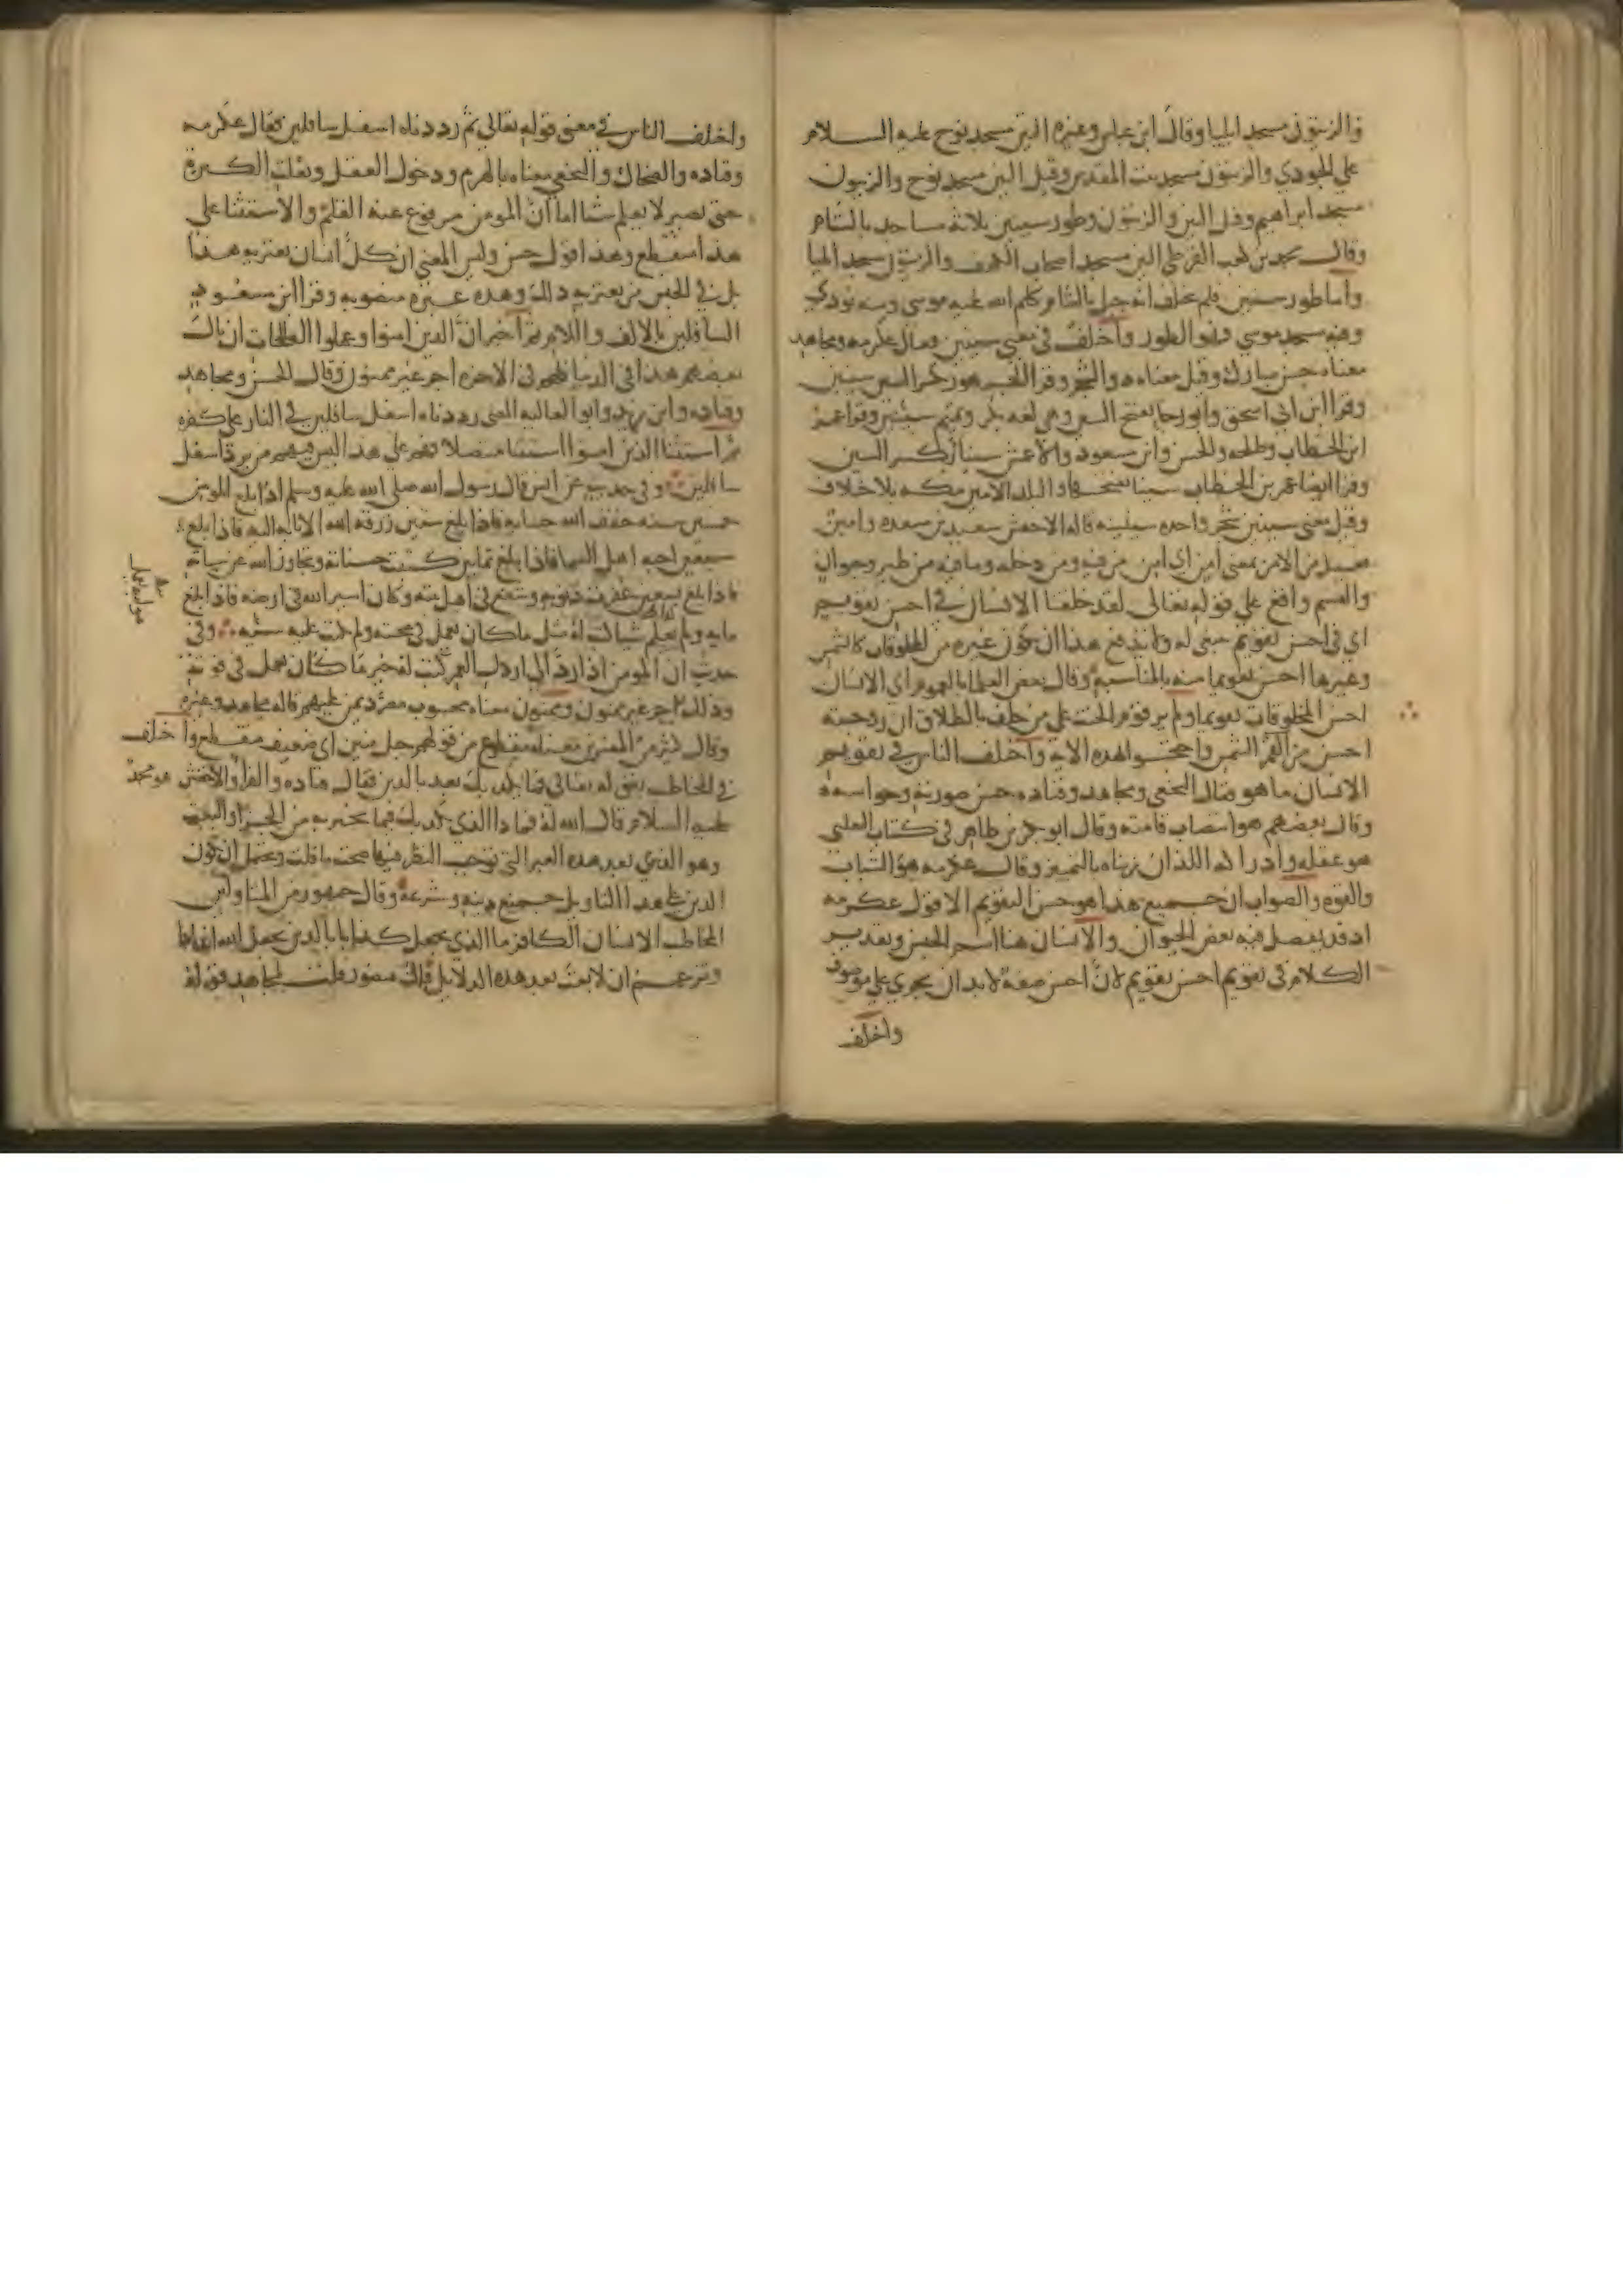 والزيتون مسجد ايليا وقال ابن عباس وغيره التين مسجد نوح عليه السلام
على الجودي والزيتون مسجد بيت المقدس وقيل التين مسجد نوح والزيتون
مسجد ابراهيم وقيل التين والزيتون وطور سينين ثلاثة مساجد بالشام
وقال محمد بن كعب القرظي التين مسجد اصحاب الكهف والزيتون مسجد ايليا
واما طور سينين فلم يختلف انه جبل بالشام كلم الله عليه موسى ومنه نودي
وفيه مسجد موسى فهو الطور واختلف في معنى سينين فقال عكرمه ومجاهد
معناه حسن مبارك وقيل معناه ذو الشجر وقرا الجمهور بكسر السين سينين
وقرا ابن ابي اسحق وابو رجا بفتح السين وهي لغه بكر وتميم سينين وقرا عمر
ابن الخطاب وطلحه والحسن وابن مسعود والاعمش سينا بكسر السين
وقرا ايضا عمر بن الخطاب سينا بفتحها والبلد الامين مكه بلا خلاف
وقيل معنى سينين شجر واحده سينينه قاله الاخفش سعيد بن مسعده وامين
فعيل من الامن بمعنى امن اي امن من فيه ومن دخله وما فيه من طير وحيوان
والقسم واقع على قوله تعالى لقد خلقنا الانسان في احسن تقويم
اي في احسن تقويم ينبغي له ولا يدفع هذا ان يكون غيره من المخلوقات كالشمس
وغيرها احسن تقويما منه بالمناسبة وقال بعض العلما بالعموم اي الانسان
احسن المخلوقات تقويما ولم ير قوم الحنث على من حلف بالطلاق ان زوجته
احسن من القمر الشمس واحتجوا بهذه الاية واختلف الناس في تقويم
الانسان ما هو فقال النخعي ومجاهد وقتاده حسن صورته وحواسه
وقال بعضهم هو انتصاب قامته وقال ابو بكر بن طاهر في كتاب الثعلبي
هو عقله وادراكه اللذان زيناه بالتمييز وقال عكرمه هو الشباب
والقوه والصواب ان جميع هذا هو حسن التقويم الا قول عكرمه
اذ قد يفضل فيه بعض الحيوان والانسان هنا اسم الجنس وتقدير
الكلام في تقويم احسن تقويم لان احسن صفة لا بد ان يجري على موصوف
واختلف
واختلف الناس في معنى قوله تعالى ثم رددناه اسفل سافلين فقال عكرمه
وقتاده والضحاك والنخعي معناه بالهرم وذهول العقل وتفلت الكبرة
حتى يصير لا يعلم شيا اما ان المومن مرفوع عنه القلم والاستثنا على
هذا منقطع وهذا قول حسن وليس المعنى ان كل انسان يعتريه هذا
بل في الجنس من يعتريه ذلك وهذه عبره منصوبه وقرا ابن مسعود
السافلين بالالف واللام ثم اخبر ان الذين امنوا وعملوا الصالحات ان نال
بعضهم هذا في الدنيا فلهم في الاخره اجر غير ممنون وقال الحسن ومجاهد
وقتاده وابن زيد وابو العاليه المعنى رددناه اسفل سافلين في النار على كفره
ثم استثنا الذين امنوا استثنا متصلا فهم على هذا ليس فيهم من يرد اسفل
سافلين وفي حديث عن انس قال رسول الله صلى الله عليه وسلم اذا بلغ المومن
خمسين سنه خفف الله حسابه فاذا بلغ ستين رزقه الله الانابه اليه فاذا بلغ
سبعين احبه اهل السما فاذا بلغ ثمانين كتبت حسناته وتجاوز الله عن سياته
فاذا بلغ تسعين غفرت ذنوبه وشفع في اهل بيته وكان اسير الله في ارضه فاذا بلغ
مايه ولم يعلم شيا كتب له مثل ما كان يعمل في صحته ولم تكتب عليه سيئه وفي
حديث ان المومن اذا رد الى ارذل العمر كتب له خير ما كان يعمل في قوته
وذلك اجر غير ممنون وممنون معناه محسوب مصرد يمن عليهم قاله مجاهد وغيره
وقال كثير من المفسرين معناه مقطوع من قولهم حبل منين اي ضعيف منقطع واختلف
في المخاطب بقوله تعالى فما يكذبك بعد بالدين فقال قتاده والفرا والاخفش هو محمد
عليه السلام قال الله له فماذا الذي يكذبك فيما تخبر به من الجزا والبعث
وهو الدين بعد هذه العبر التي توجب النظر فيها صحة ما قلت ويحتمل ان يكون
الدين على هذا التاويل جميع دينه وشرعه وقال جمهور من المتاولين
المخاطب الانسان الكافر ما الذي يجعلك كذابا بالدين تجعل لله اندادا
وتزعم ان لا بعث بعد هذه الدلايل قال منصور قلت لمجاهد قوله